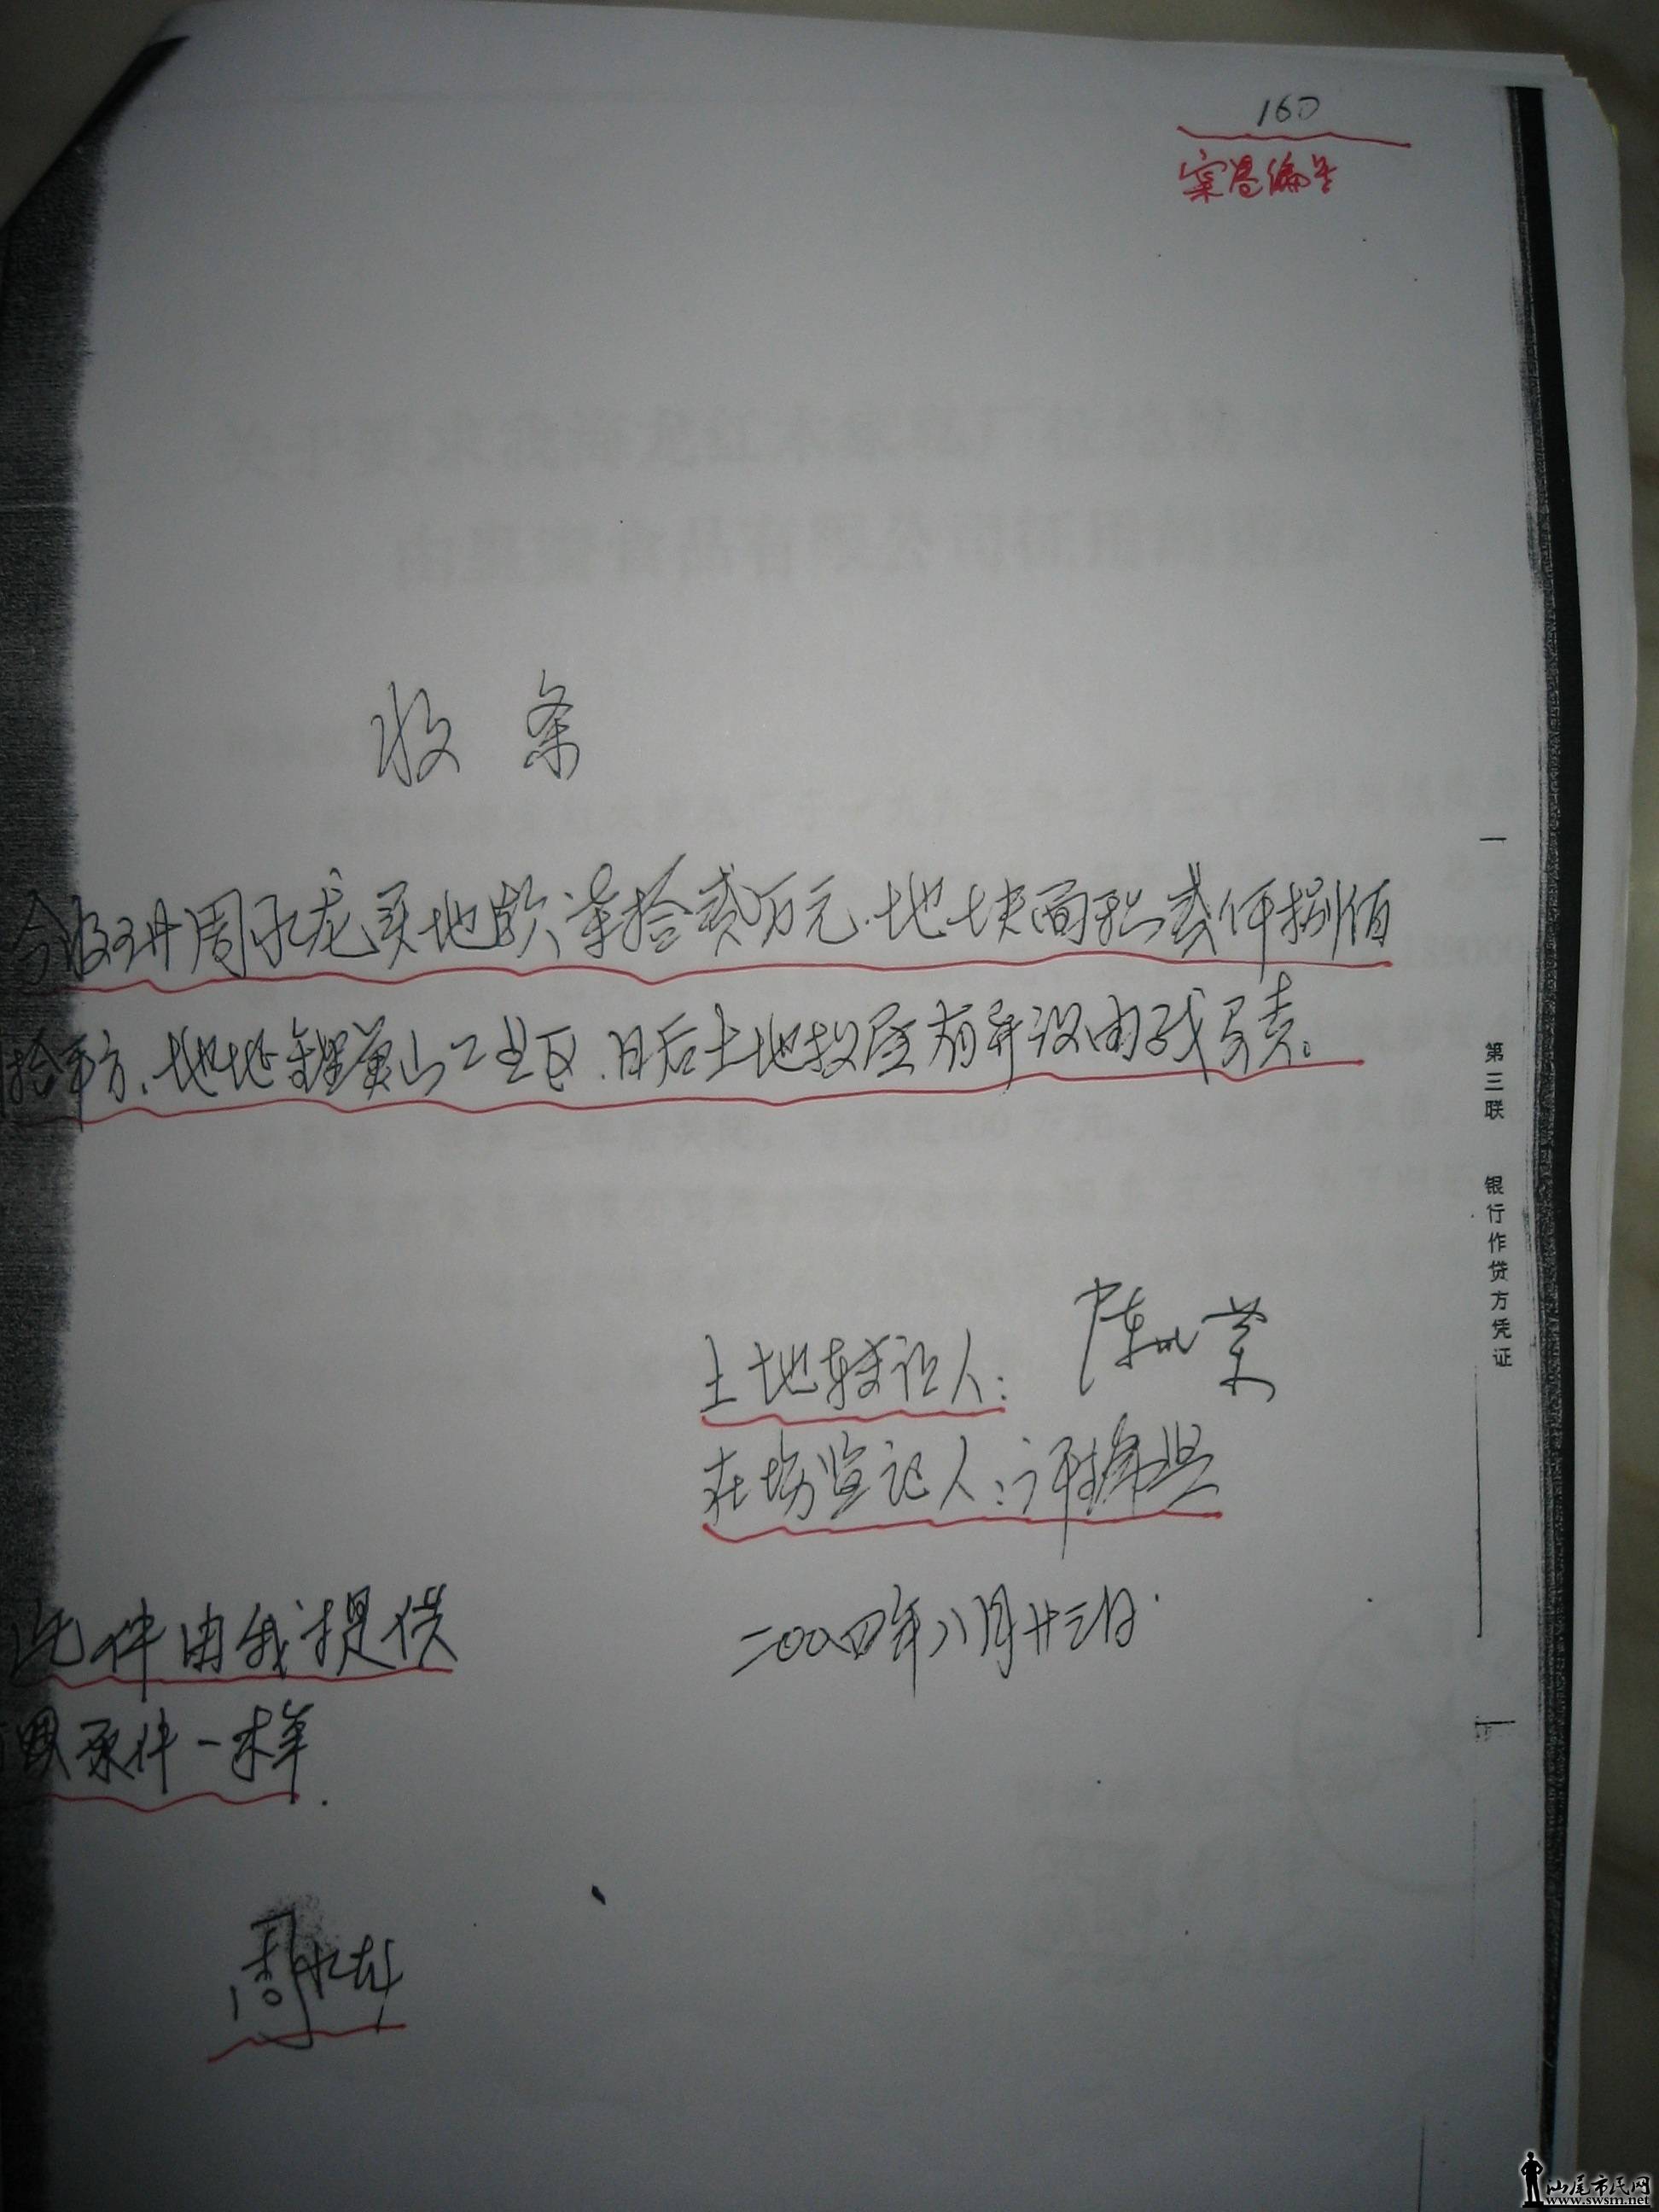 160
案卷编号
收条
今收到周永龙买地款 拾贰万元.地块面积贰仟捌佰
拾平方、地 黄山工业区.日后土地权属有异议由我负责。
第三联 银行作贷方凭证
土地转让人: 陈 业
在场监记人:许
二00四年八月廿三日.
此件由我提供
跟原件一样.
周永龙
汕尾市民网
www.swsm.net